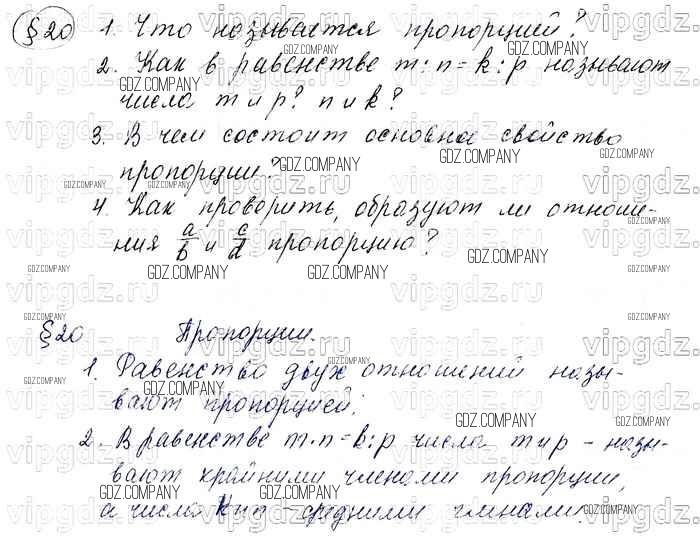 §20 1. Что называется пропорцией?
2. Как в равенстве m:n=k:p называют
числа m и p? n и k?
3. В чем состоит основна свойство
пропорции?
4. Как проверить, образуют ли отноше-
ния a/b и c/d пропорцию?
§20 Пропорции.
1. Равенство двух отношений назы-
вают пропорцией.
2. В равенстве m:n=k:p числа m и p – назы-
вают крайними членами пропорции,
а числа k и n – средними членами.
vipgdz.ru
GDZ.COMPANY